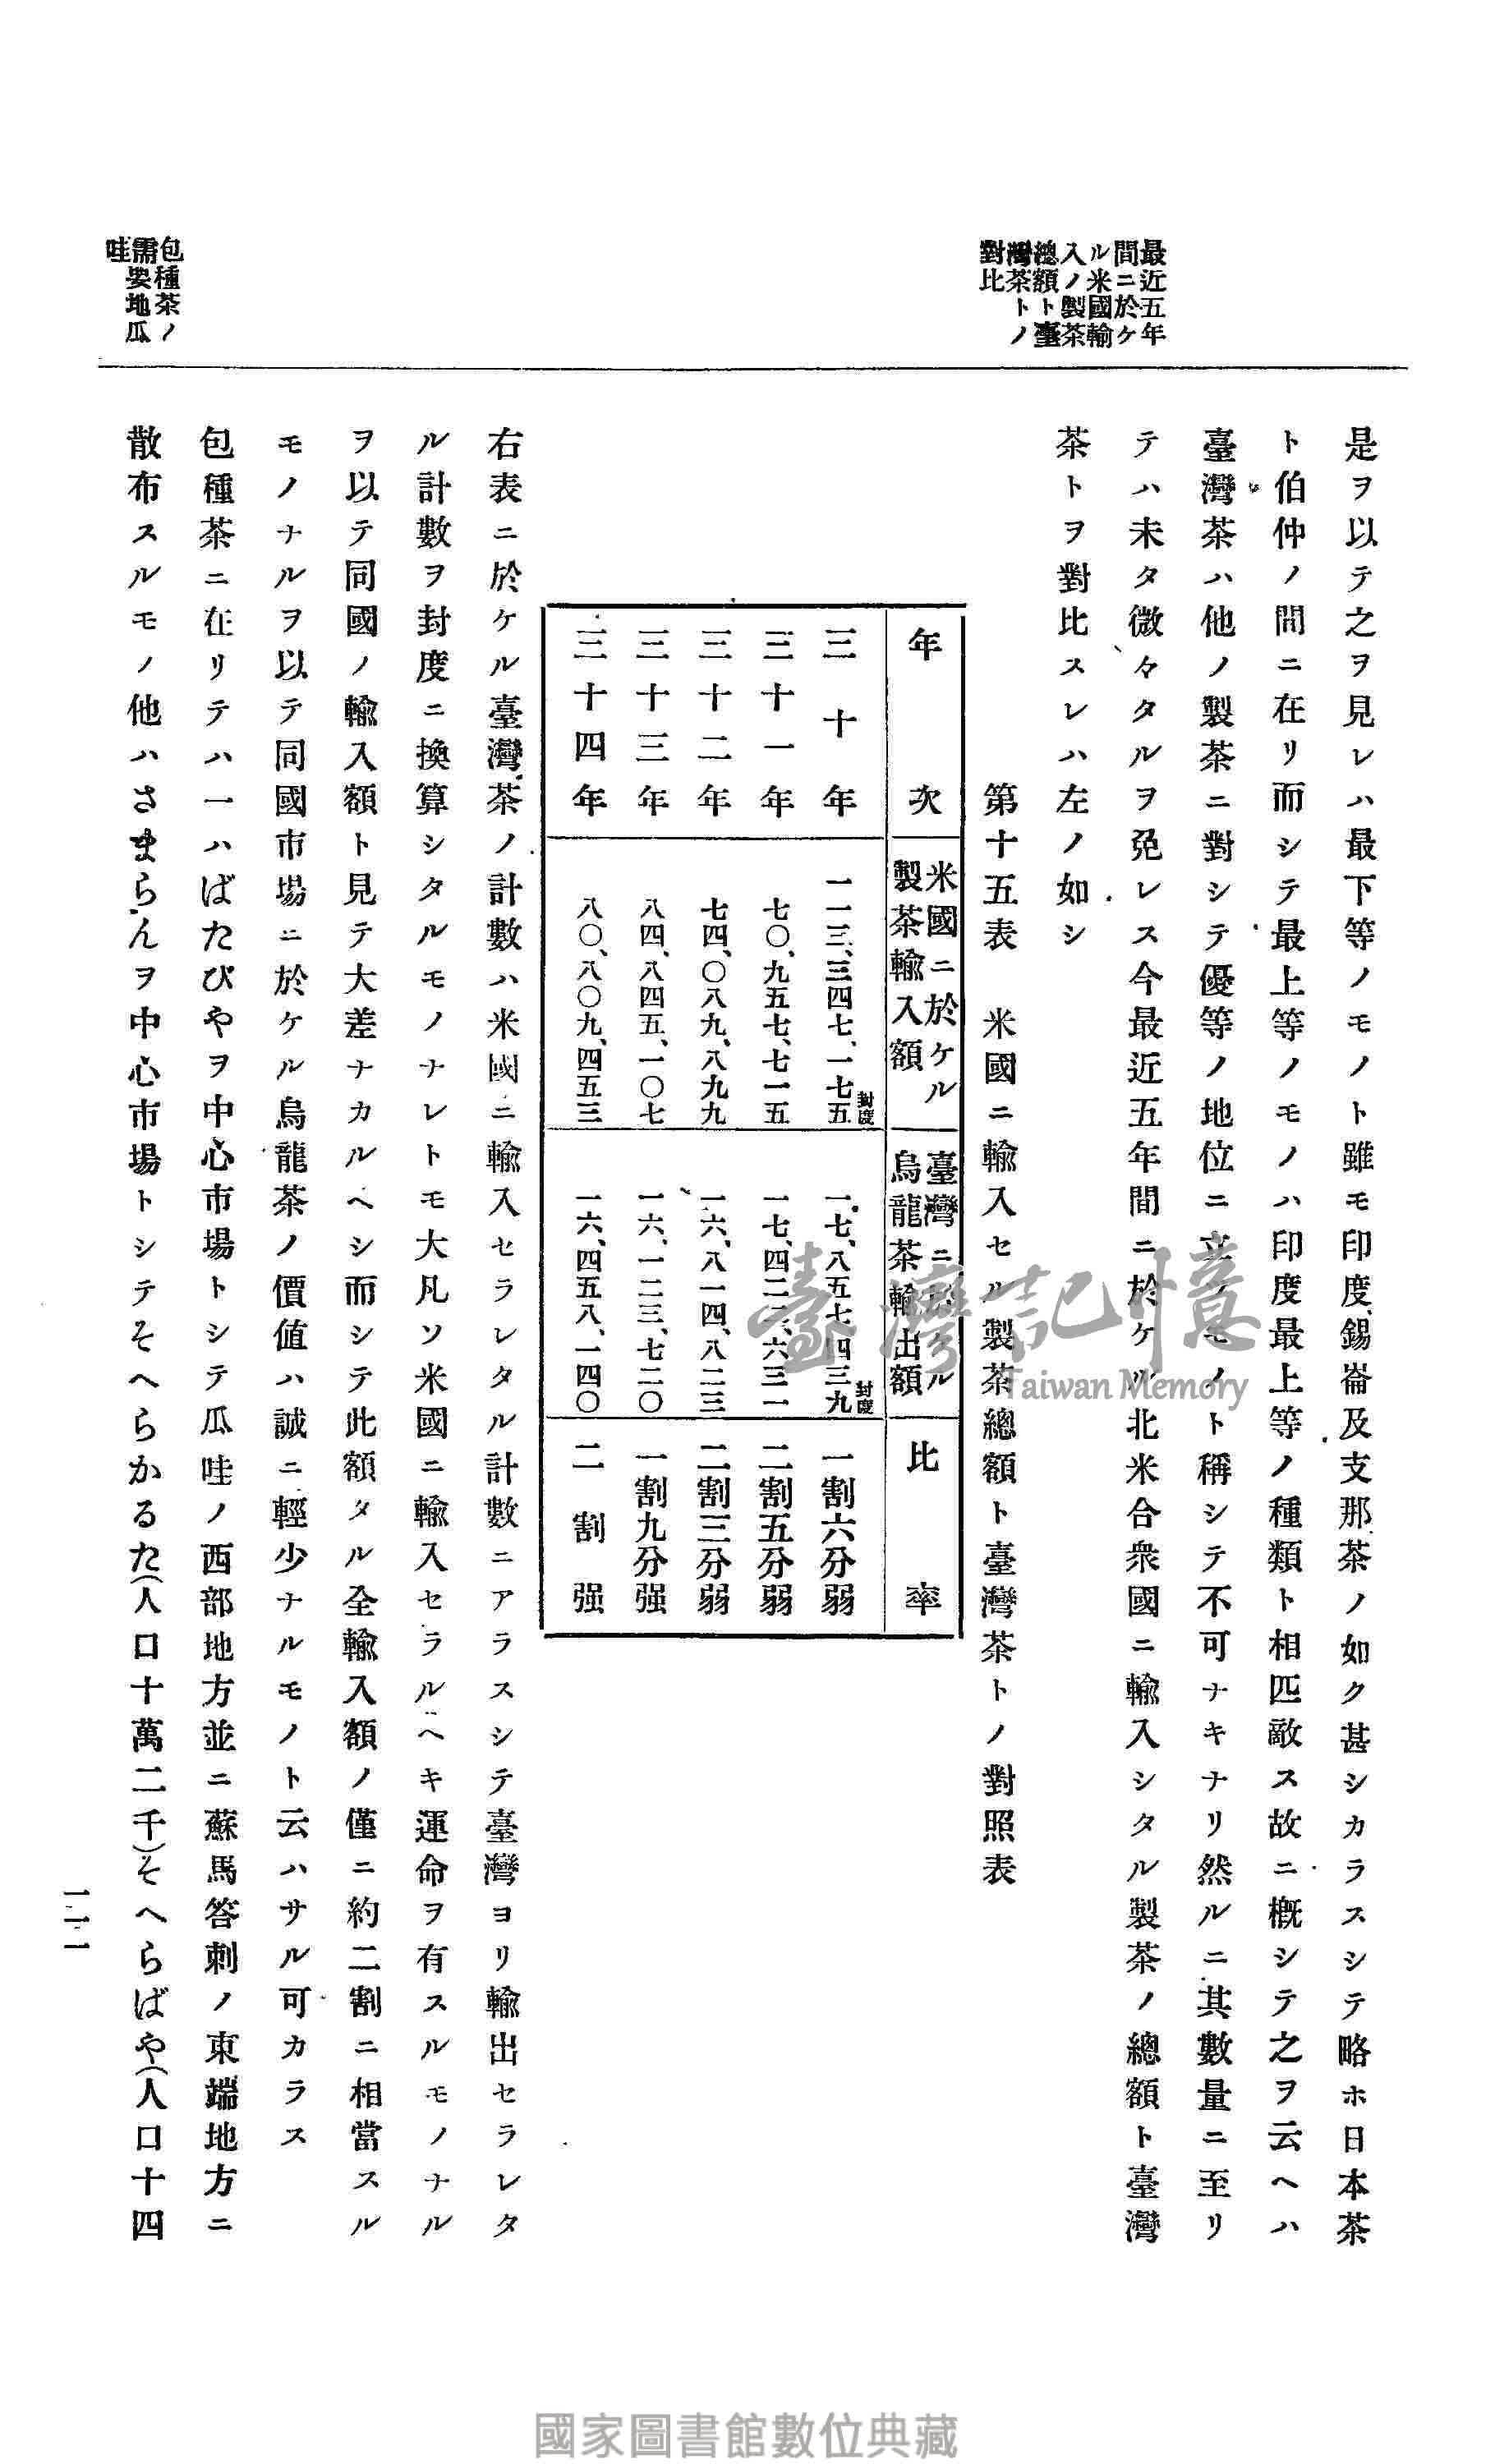 最近五年
間ニ於ケ
ル米國輸
入ノ製茶
總額ト臺
灣茶トノ
對比
包種茶ノ
需要地瓜
哇
是ヲ以テ之ヲ見レハ最下等ノモノト雖モ印度、錫崙及支那茶ノ如ク甚シカラスシテ略ホ日本茶
ト伯仲ノ間ニ在リ而シテ最上等ノモノハ印度最上等ノ種類ト相匹敵ス故ニ概シテ之ヲ云ヘハ
臺灣茶ハ他ノ製茶ニ對シテ優等ノ地位ニ立ツモノト稱シテ不可ナキナリ然ルニ其數量ニ至リ
テハ未タ微々タルヲ免レス今最近五年間ニ於ケル北米合衆國ニ輸入シタル製茶ノ總額ト臺灣
茶トヲ對比スレハ左ノ如シ
第十五表 米國ニ輸入セル製茶總額ト臺灣茶トノ對照表
年次 米國ニ於ケル製茶輸入額 臺灣ニ於ケル烏龍茶輸出額 比率
三十年 一一三、三四七、一七五封度 一七、八五七、四三九封度 一割六分弱
三十一年 七〇、九五七、七一五 一七、四二二、六三一 二割五分弱
三十二年 七四、〇八九、八九九 一六、八一四、八二三 二割三分弱
三十三年 八四、八四五、一〇七 一六、一二三、七二〇 一割九分强
三十四年 八〇、八〇九、四五三 一六、四五八、一四〇 二割强
右表ニ於ケル臺灣茶ノ計數ハ米國ニ輸入セラレタル計數ニアラスシテ臺灣ヨリ輸出セラレタ
ル計數ヲ封度ニ換算シタルモノナレトモ大凡ソ米國ニ輸入セラルヘキ運命ヲ有スルモノナル
ヲ以テ同國ノ輸入額ト見テ大差ナカルヘシ而シテ此額タル全輸入額ノ僅ニ約二割ニ相當スル
モノナルヲ以テ同國市場ニ於ケル烏龍茶ノ價値ハ誠ニ輕少ナルモノト云ハサル可カラス
包種茶ニ在リテハ一ハばたびやヲ中心市場トシテ瓜哇ノ西部地方並ニ蘇馬答剌ノ東端地方ニ
散布スルモノ他ハさまらんヲ中心市場トシテそへらかるた(人口十萬二千)そへらばや(人口十四
一二一
臺灣記憶
Taiwan Memory
國家圖書館數位典藏